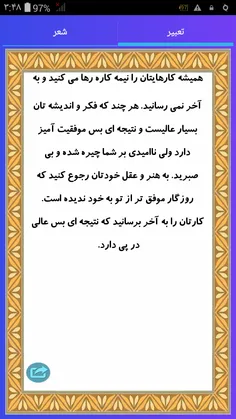 ۳:۴۸ 97%
شعر تعبیر
همیشه کارهایتان را نیمه کاره رها می کنید و به
آخر نمی رسانید. هر چند که فکر و اندیشه تان
بسیار عالیست و نتیجه ای بس موفقیت آمیز
دارد ولی ناامیدی بر شما چیره شده و بی
صبرید. به هنر و عقل خودتان رجوع کنید که
روزگار موفق تر از تو به خود ندیده است.
کارتان را به آخر برسانید که نتیجه ای بس عالی
در پی دارد.